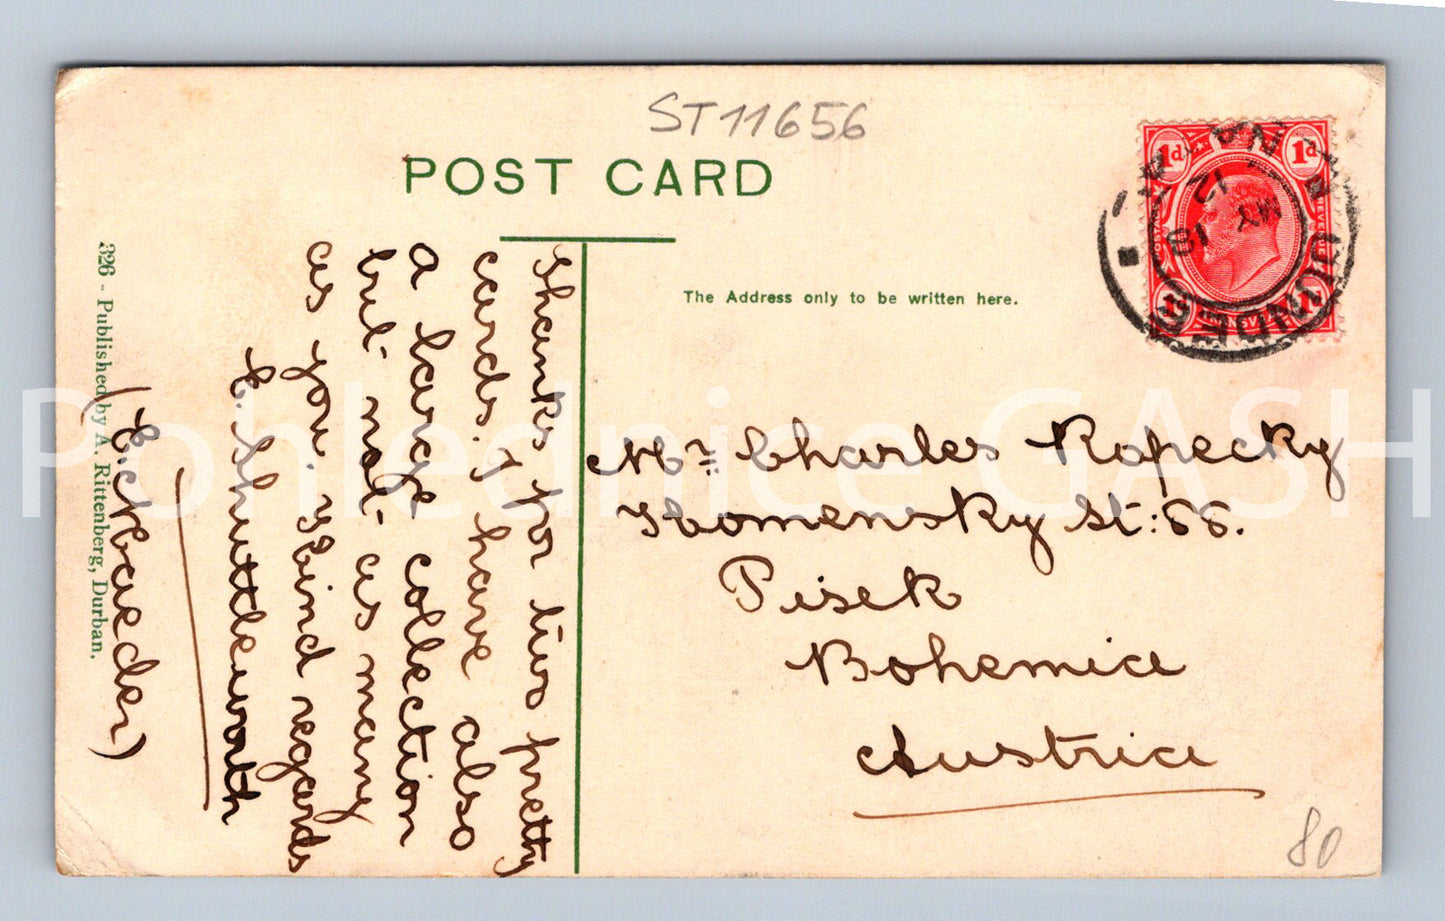 ST11656
POST CARD
The Address only to be written here.
1d 1d
DUNDEE
12
MY 18
Mr. Charles Kopecky
Komensky St: 66.
Pisek
Bohemia
Austria
80
Thanks for two pretty
cards. I have also
a large collection
but not as many
as you. Kind regards
E. Shuttleworth
326 - Published by A. Rittenberg, Durban.
Pohlednice GASH